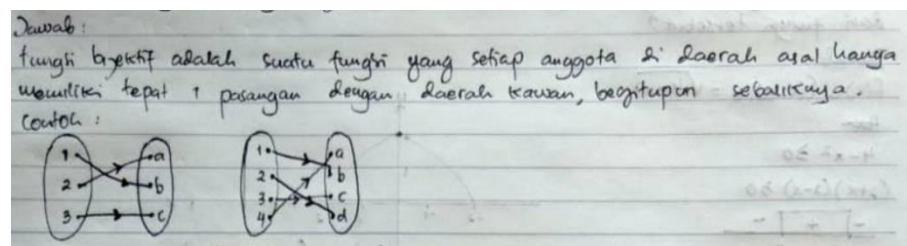 Jawab :
fungsi byektif adalah suatu fungsi yang setiap anggota di daerah asal hanya
memiliki tepat 1 pasangan dengan daerah kawan, begitupun sebaliknya.
Contoh :
1 a 1 a
2 b 2 b
3 c 3 c
4 d